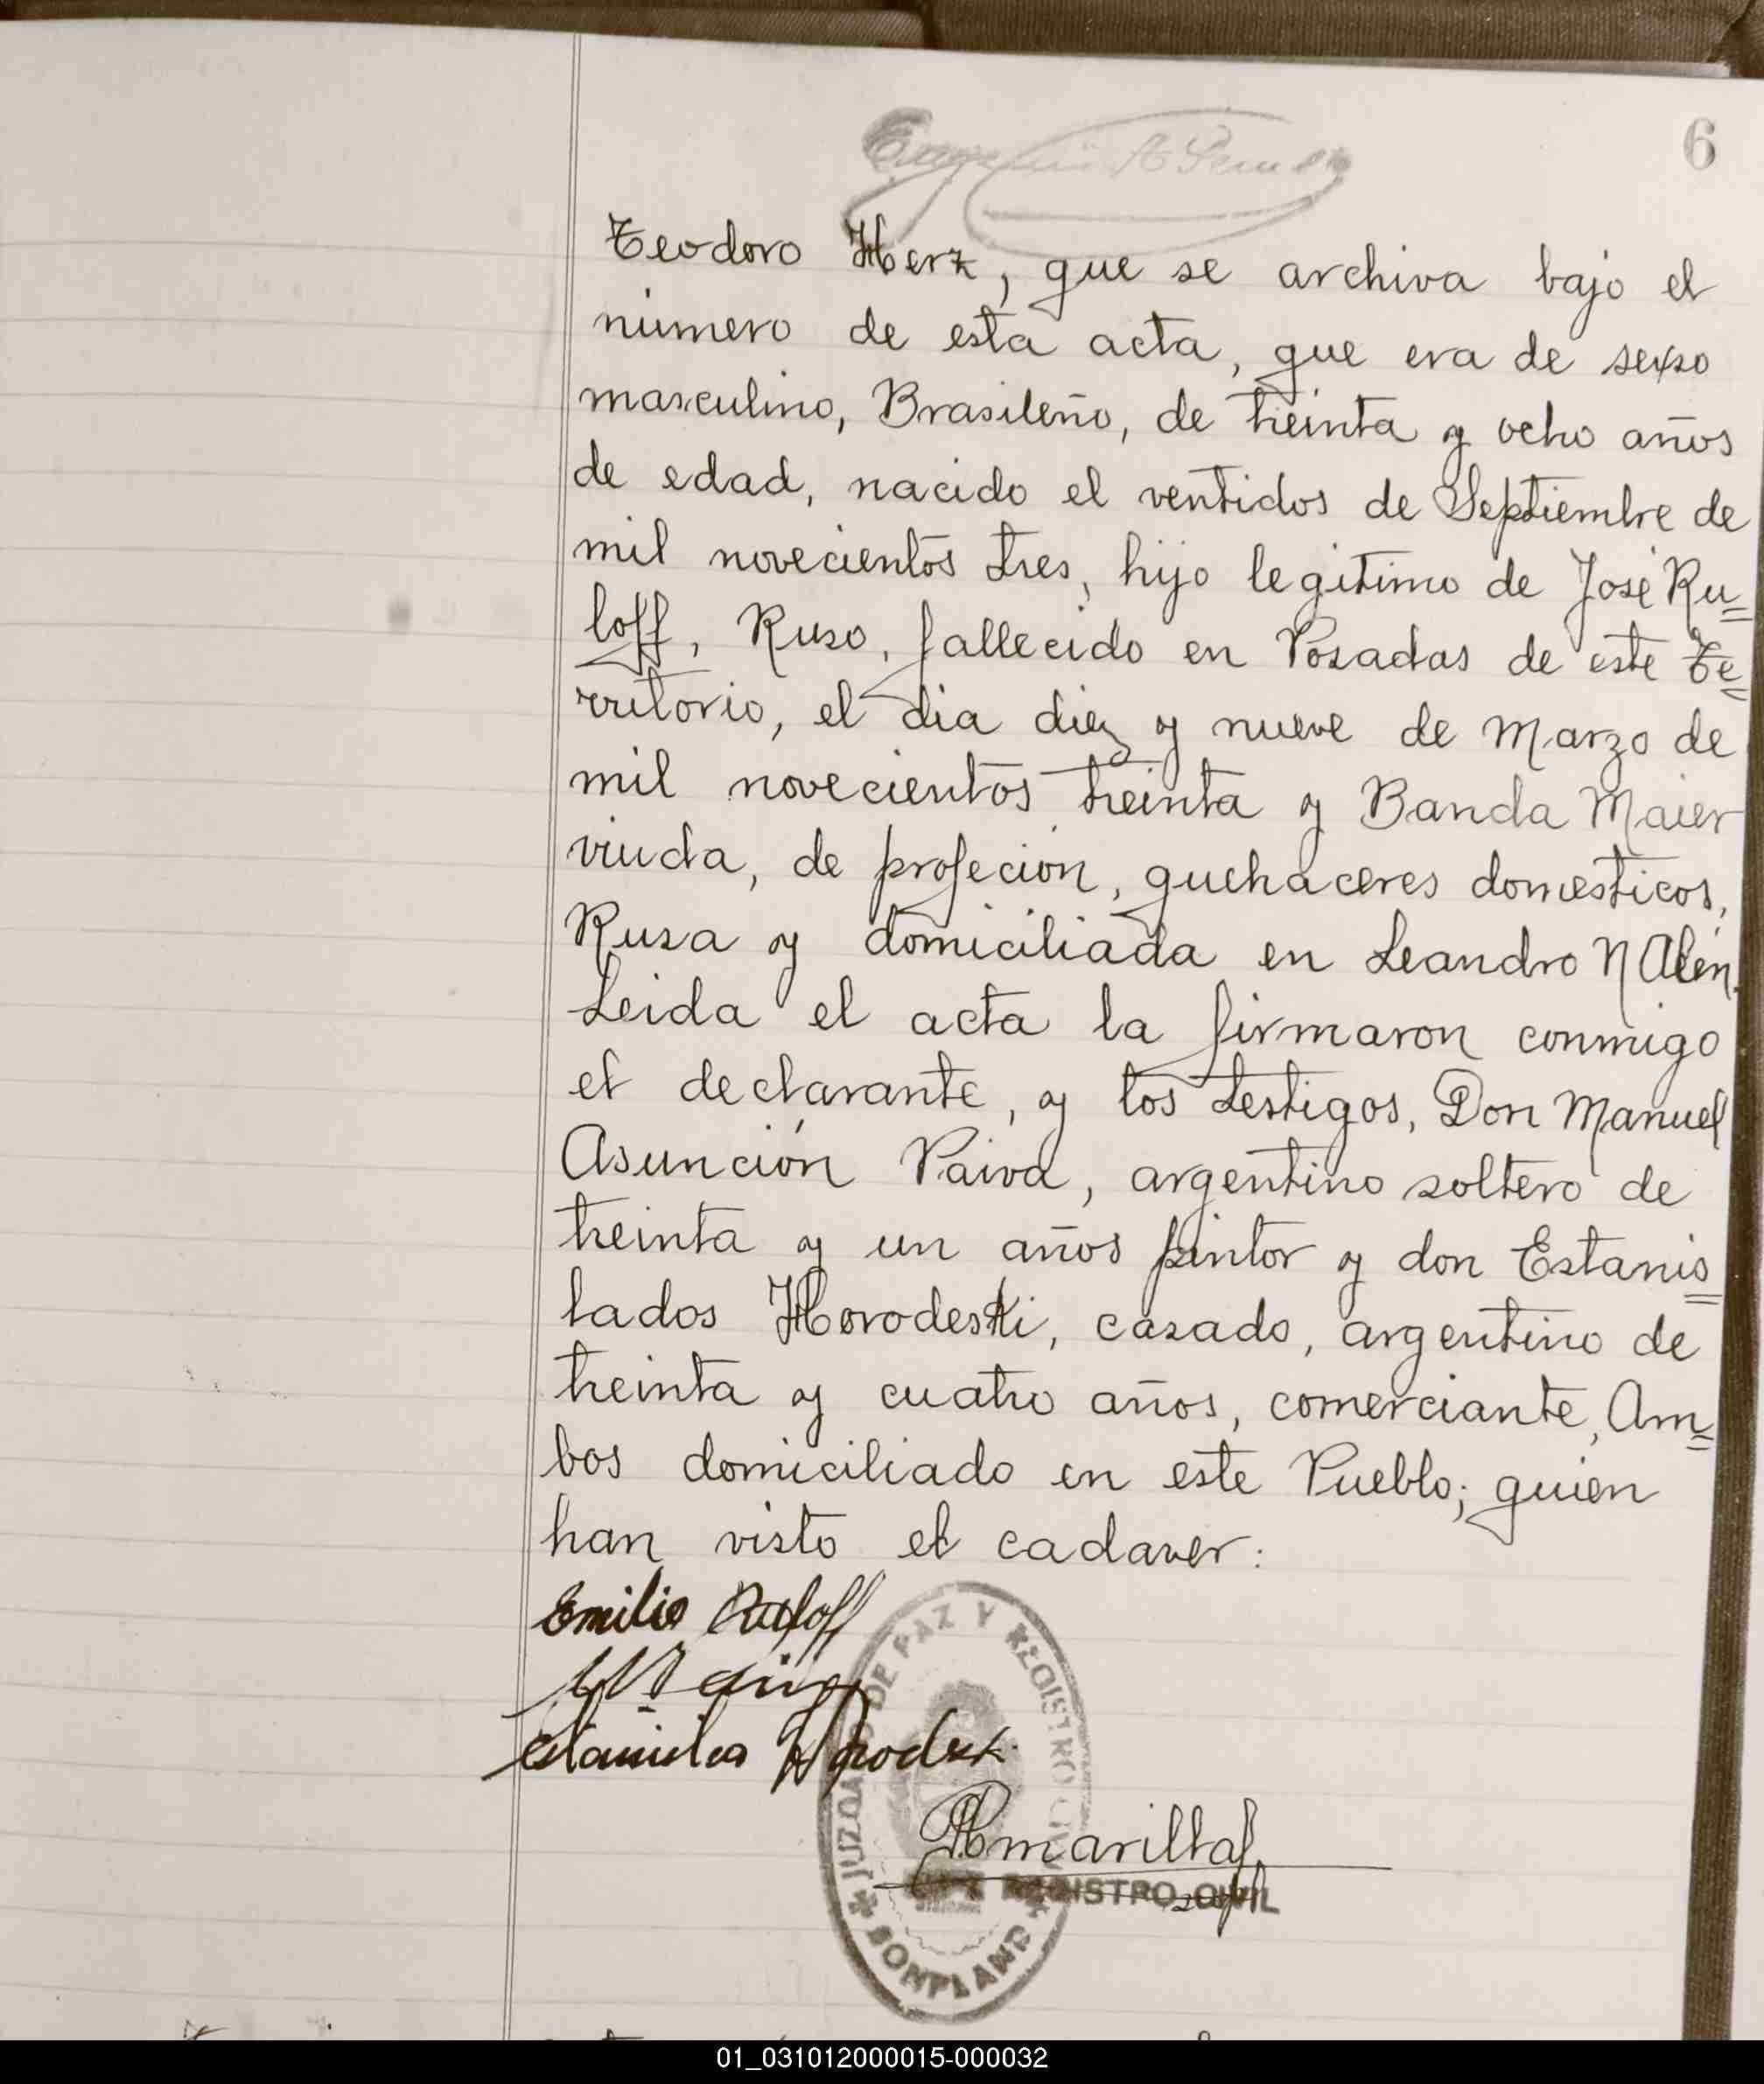 6
Teodoro Herz, que se archiva bajo el
número de esta acta, que era de sexso
masculino, Brasileño, de treinta y ocho años
de edad, nacido el ventidos de Septiembre de
mil novecientos tres, hijo legitimo de José Ru=
loff, Ruso, fallecido en Posadas de este Te=
rritorio, el dia diez y nueve de Marzo de
mil novecientos treinta y Banda Maier
viuda, de profecion, quehaceres domesticos,
Rusa y domiciliada en Leandro N Alen.
Leida el acta la firmaron conmigo
el declarante, y los testigos, Don Manuel
Asunción Paiva, argentino soltero de
treinta y un años pintor y don Estanis=
lados Horodeski, casado, argentino de
treinta y cuatro años, comerciante, Am=
bos domiciliado en este Pueblo; quien
han visto el cadaver:
Emilio Ruloff
JUZGADO DE PAZ Y REGISTRO CIVIL
BONPLAND
REGISTRO CIVIL
01_031012000015-000032